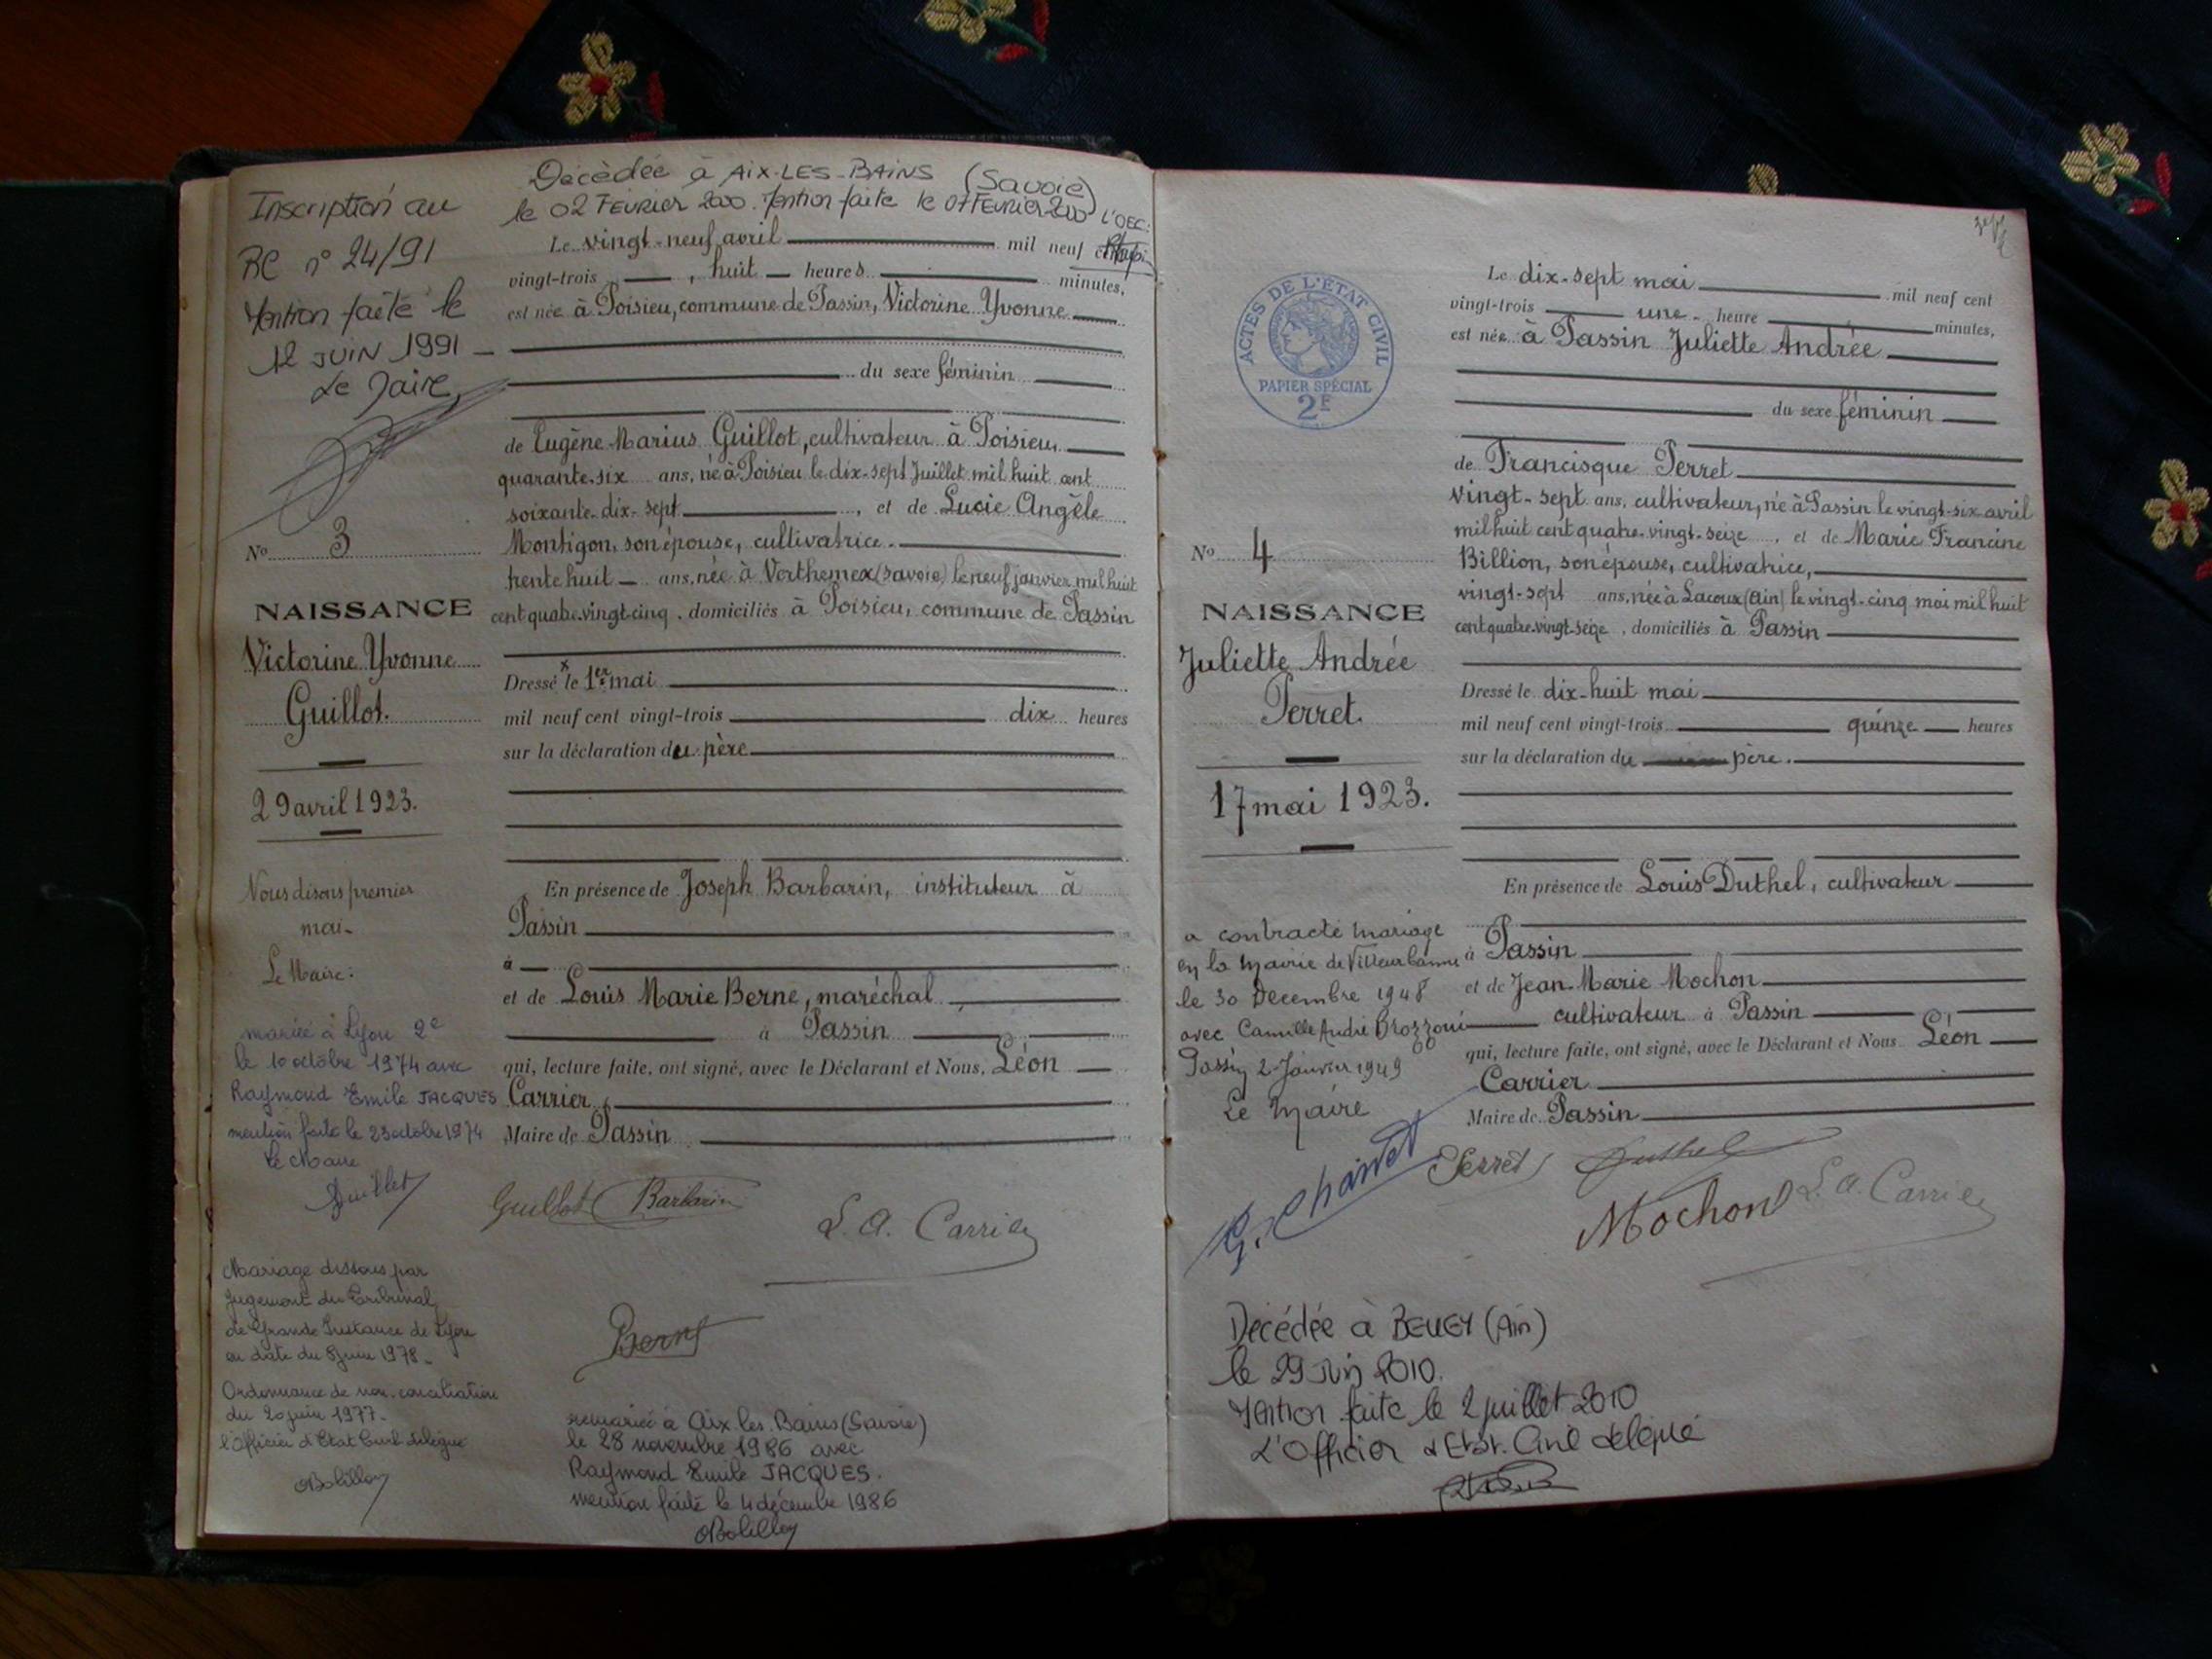 Décédée à AIX-LES-BAINS (Savoie)
le 02 FEVRIER 2000. Mention faite le 07 FEVRIER 2000 L'OEC:
Inscription au
RC n° 24/91
Mention faite le
12 JUIN 1991
Le Maire,
N° 3
NAISSANCE
Victorine Yvonne
Guillot.
29 avril 1923.
Nous disons premier
mai.
Le Maire:
mariée à Lyon 2e
le 10 octobre 1974 avec
Raymond Emile JACQUES
mention faite le 23 octobre 1974
Le Maire
Mariage dissous par
Jugement du Tribunal
de Grande Instance de Lyon
en date du 8 juin 1978.
Ordonnance de non-conciliation
du 20 juin 1977.
l'Officier d'Etat Civil délégué
Le vingt-neuf avril mil neuf cent
vingt-trois, huit heures minutes,
est née à Poisieu, commune de Passin, Victorine Yvonne
du sexe féminin
de Eugène Marius Guillot, cultivateur à Poisieu,
quarante-six ans, né à Poisieu le dix-sept Juillet mil huit cent
soixante-dix-sept, et de Lucie Angèle
Montigon, son épouse, cultivatrice.
trente huit ans, née à Verthemex (Savoie) le neuf janvier mil huit
cent quatre-vingt-cinq, domiciliés à Poisieu, commune de Passin
Dressé le 1er mai
mil neuf cent vingt-trois dix heures
sur la déclaration du père
En présence de Joseph Barbarin, instituteur à
Passin
à
et de Louis Marie Berne, maréchal
à Passin
qui, lecture faite, ont signé, avec le Déclarant et Nous, Léon
Carrier,
Maire de Passin
Guillot Barbarin
L. A. Carrier
Berne
remariée à Aix les Bains (Savoie)
le 28 novembre 1986 avec
Raymond Emile JACQUES.
mention faite le 4 décembre 1986
ACTES DE L'ÉTAT CIVIL
PAPIER SPÉCIAL
2F
N° 4
NAISSANCE
Juliette Andrée
Perret.
17 mai 1923.
a contracté mariage
en la Mairie de Villeurbanne
le 30 Décembre 1948
avec Camille André Brozzoni
Passin 2 Janvier 1949
Le Maire
Le dix-sept mai mil neuf cent
vingt-trois une heure minutes,
est née à Passin Juliette Andrée
du sexe féminin
de Francisque Perret
vingt-sept ans, cultivateur, né à Passin le vingt-six avril
mil huit cent quatre-vingt-seize, et de Marie Francine
Billion, son épouse, cultivatrice,
vingt-sept ans, née à Lacoux (Ain) le vingt-cinq mai mil huit
cent quatre-vingt-seize, domiciliés à Passin
Dressé le dix-huit mai
mil neuf cent vingt-trois quinze heures
sur la déclaration du père.
En présence de Louis Duthel, cultivateur
à Passin
et de Jean-Marie Mochon
cultivateur à Passin
qui, lecture faite, ont signé, avec le Déclarant et Nous Léon
Carrier
Maire de Passin
Perret Duthel
Mochon L. A. Carrier
Décédée à BELLEY (Ain)
le 29 Juin 2010.
Mention faite le 2 juillet 2010
L'Officier d'Etat-Civil délégué